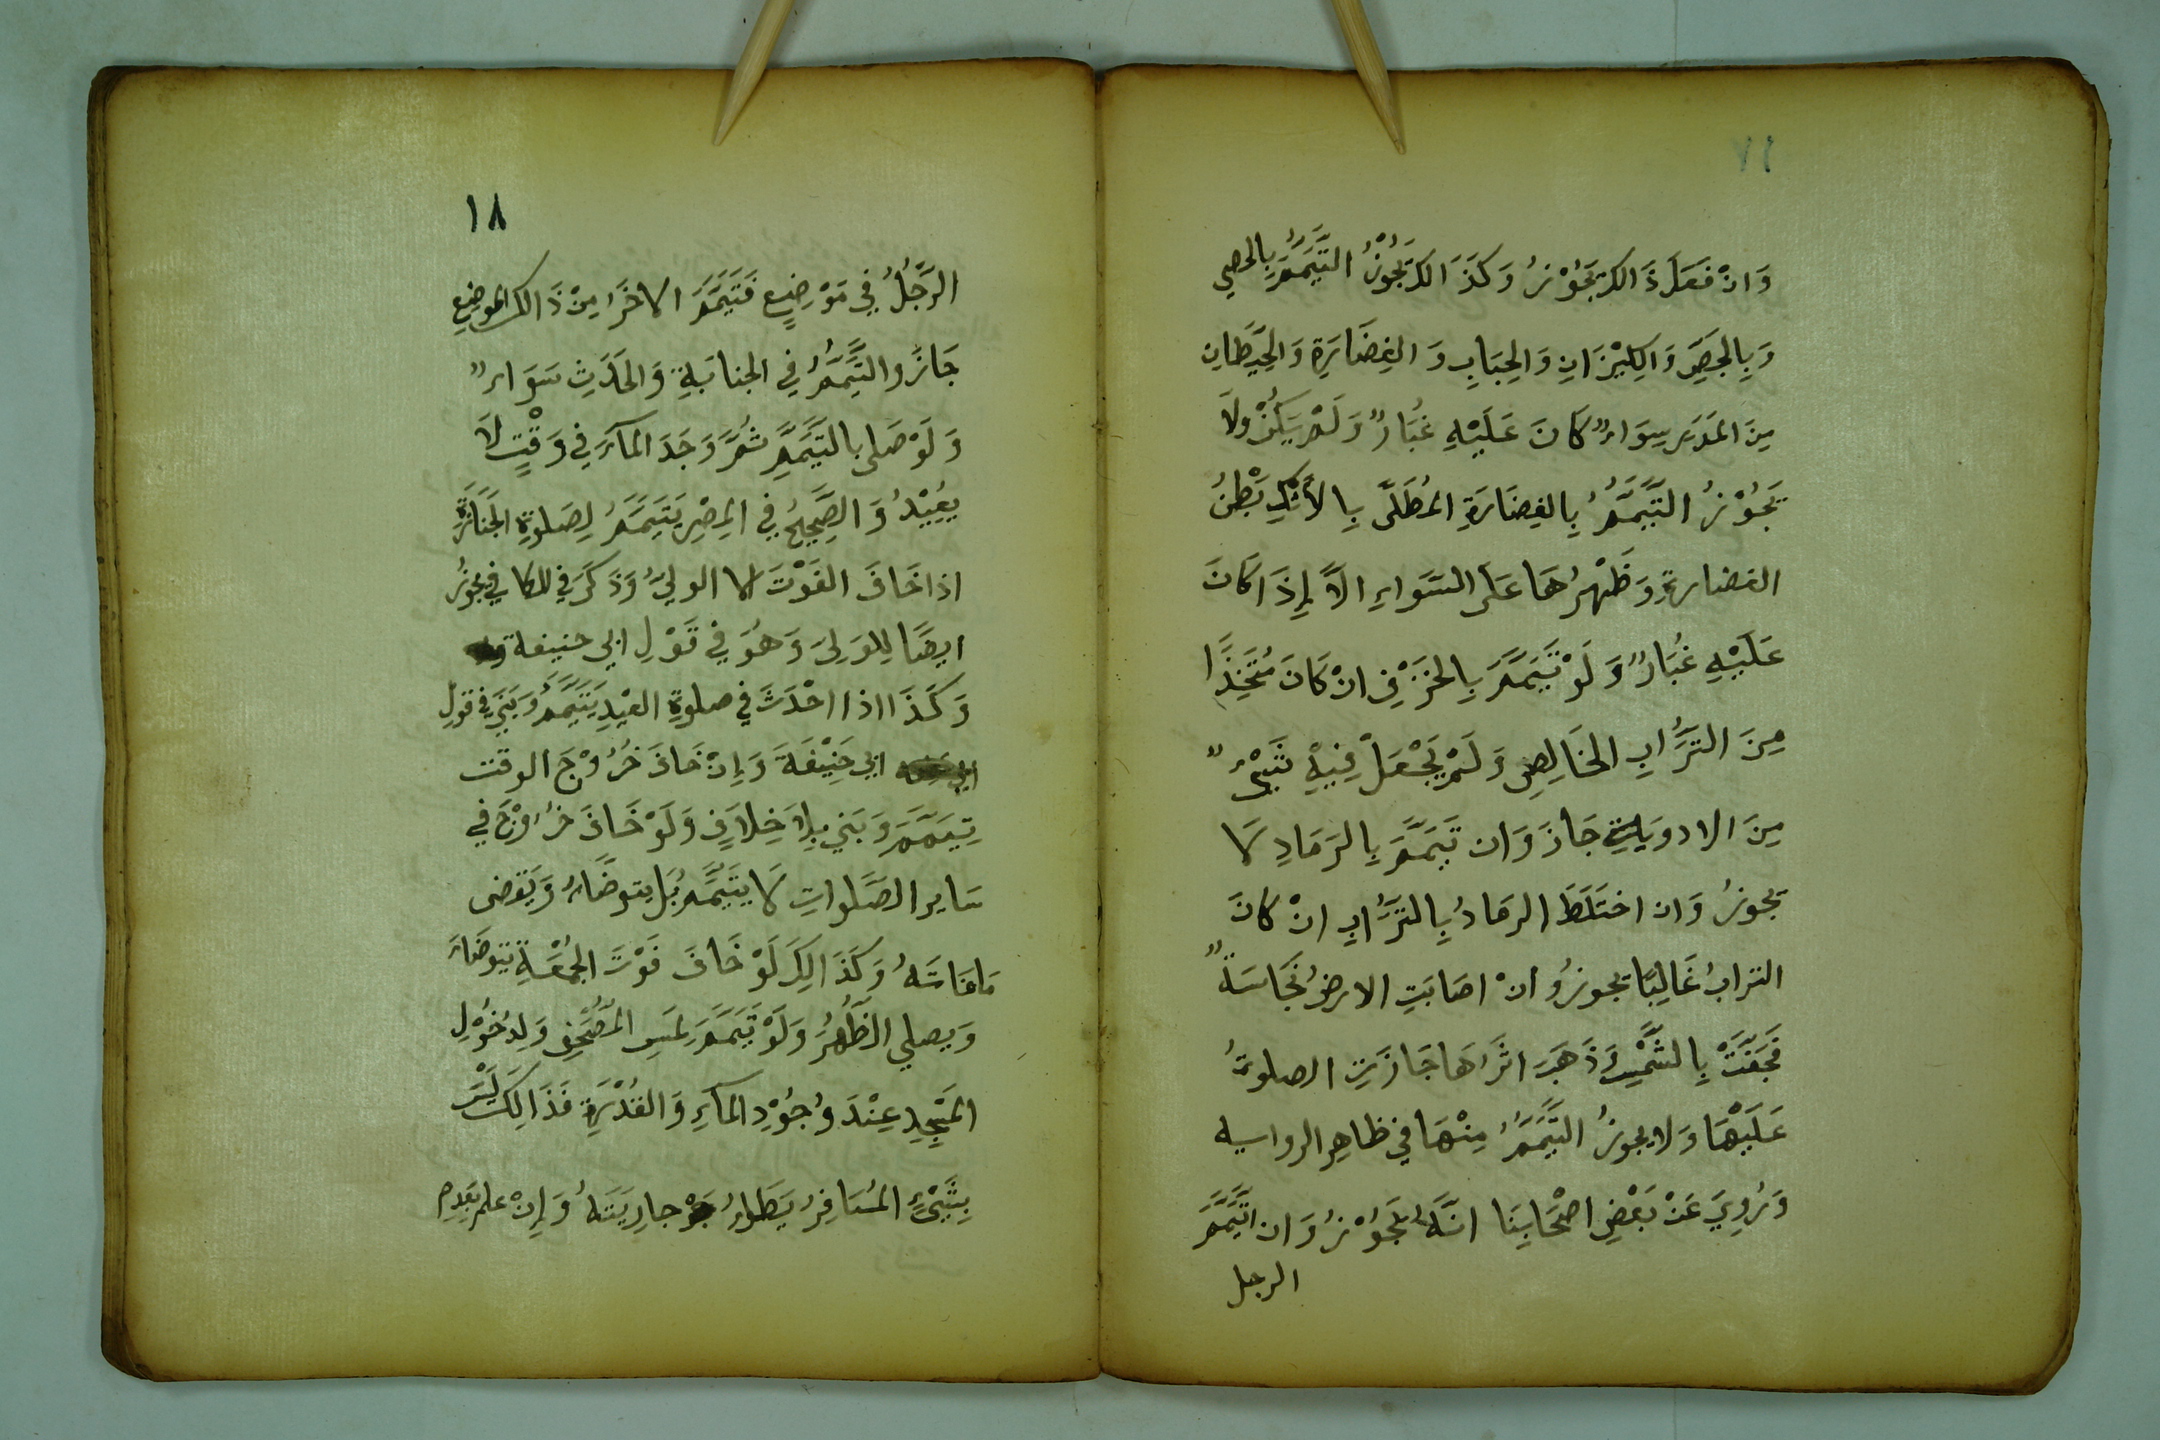 وَانْ فَعَلَ ذَالكَ يَجُوْزُ وَكَذَالكَ يَجُوْزُ التَّيَمُّمُ بِالحصى
وَبِالجَصِّ وَالكِيْزَانِ وَالحِبَابِ وَالغِضَارَةِ وَالحِيْطَانِ
مِنَ المَدَرِ سِوَاءٌ كَانَ عَلَيْهِ غُبَارٌ وَلَمْ يَكُنْ ولَا
يَجُوْزُ التَّيَمُّمُ بِالغِضَارَةِ المُطَلَّى بِالأَنُكِ بَطْنُ
الغضارةِ وَظَهْرُهَا عَلَى السَّوَاءِ الَّا إِذَا كَانَ
عَلَيْهِ غُبَارٌ وَلَوْ تَيَمَّمَ بِالخَزَفِ انْ كَانَ مُتَّخِذًا
مِنَ التُّرَابِ الخَالِصِ وَلَمْ يَجْعَلْ فِيْهِ شَيْءٌ
مِنَ الادويةِ جَازَ وَان تَيَمَّمَ بِالرَمَادِ لَا
يجوزُ وَان اختَلَطَ الرمَادُ بِالتُّرَابِ انْ كَانَ
الترابُ غَالِبًا يجوزُ وَانْ اصَابَتِ الارضُ نَجَاسَةٌ
فَجَفَّتْ بِالشَّمْسِ وَذَهَبَ اثَرُهَا جَازَتِ الصلوةُ
عَلَيْهَا وَلا يجوزُ التَّيَمُّمُ مِنْهَا في ظاهِرِ الرواىه
وَرُوِيَ عَنْ بَعْضِ اصْحَابِنَا انَّهُ يَجُوْزُ وَان تَيَمَّمَ
الرجل
١٨
الرَّجُلُ فِي مَوْضِعٍ فَتَيَمَّمَ الاخَرُ مِنْ ذَالكَ الموضِعِ
جَازَ والتَّيَمُّمُ فِي الجنابَةِ وَالحَدَثِ سَوَاءٌ
وَلَوْ صَلى بالتَيَمُّمِ ثُمَّ وَجَدَ المآءَ فِي وَقْتٍ لَا
يعِيْدُ وَالصَّحِيْحُ فِي المِصْرِ يَتَيَمَّمُ لِصَلوةِ الجَنَازَةِ
اذا خَافَ الفَوْتَ الا الوليُّ وَذَكَرَ في الكافي يجوزُ
ايضًا لِلوَلِىِّ وَهُوَ فِي قَوْلِ ابي حنيفة
وَكَذَا اذا احْدَثَ في صلوةِ العِيْدِ يَتَيَمَّمُ وَيَبْنِي في قولِ
ابي حَنِيْفَةَ وَإِنْ خَافَ خُرُوْجَ الوقت
تِيَمَّمَ وَبَنى بِلَا خِلَافٍ وَلَوْ خَافَ خُرُوْجَ فِي
سَايرِ الصَّلَواتِ لَا يتيَمَّمُ بَل يتوضَّاءُ وَيَقضى
مَا فَاتَهُ وَكَذَالِكَ لَوْ خَافَ فَوْتَ الجُمْعَةِ يتوضَّاءَ
وَيصلي الظُّهْرَ وَلَوْ تَيَمَّمَ لِمَسِّ المُصْحَفِ وَلِدُخُوْلِ
المَسْجِدِ عِنْدَ وُجُوْدِ المآءِ وَالقُدْرَةِ فَذَالِكَ لَيْسَ
بِشَيْءٍ المُسَافِرُ يَطَاءُ جارِيَتَهُ وَإِنْ علم بعَدِمِ